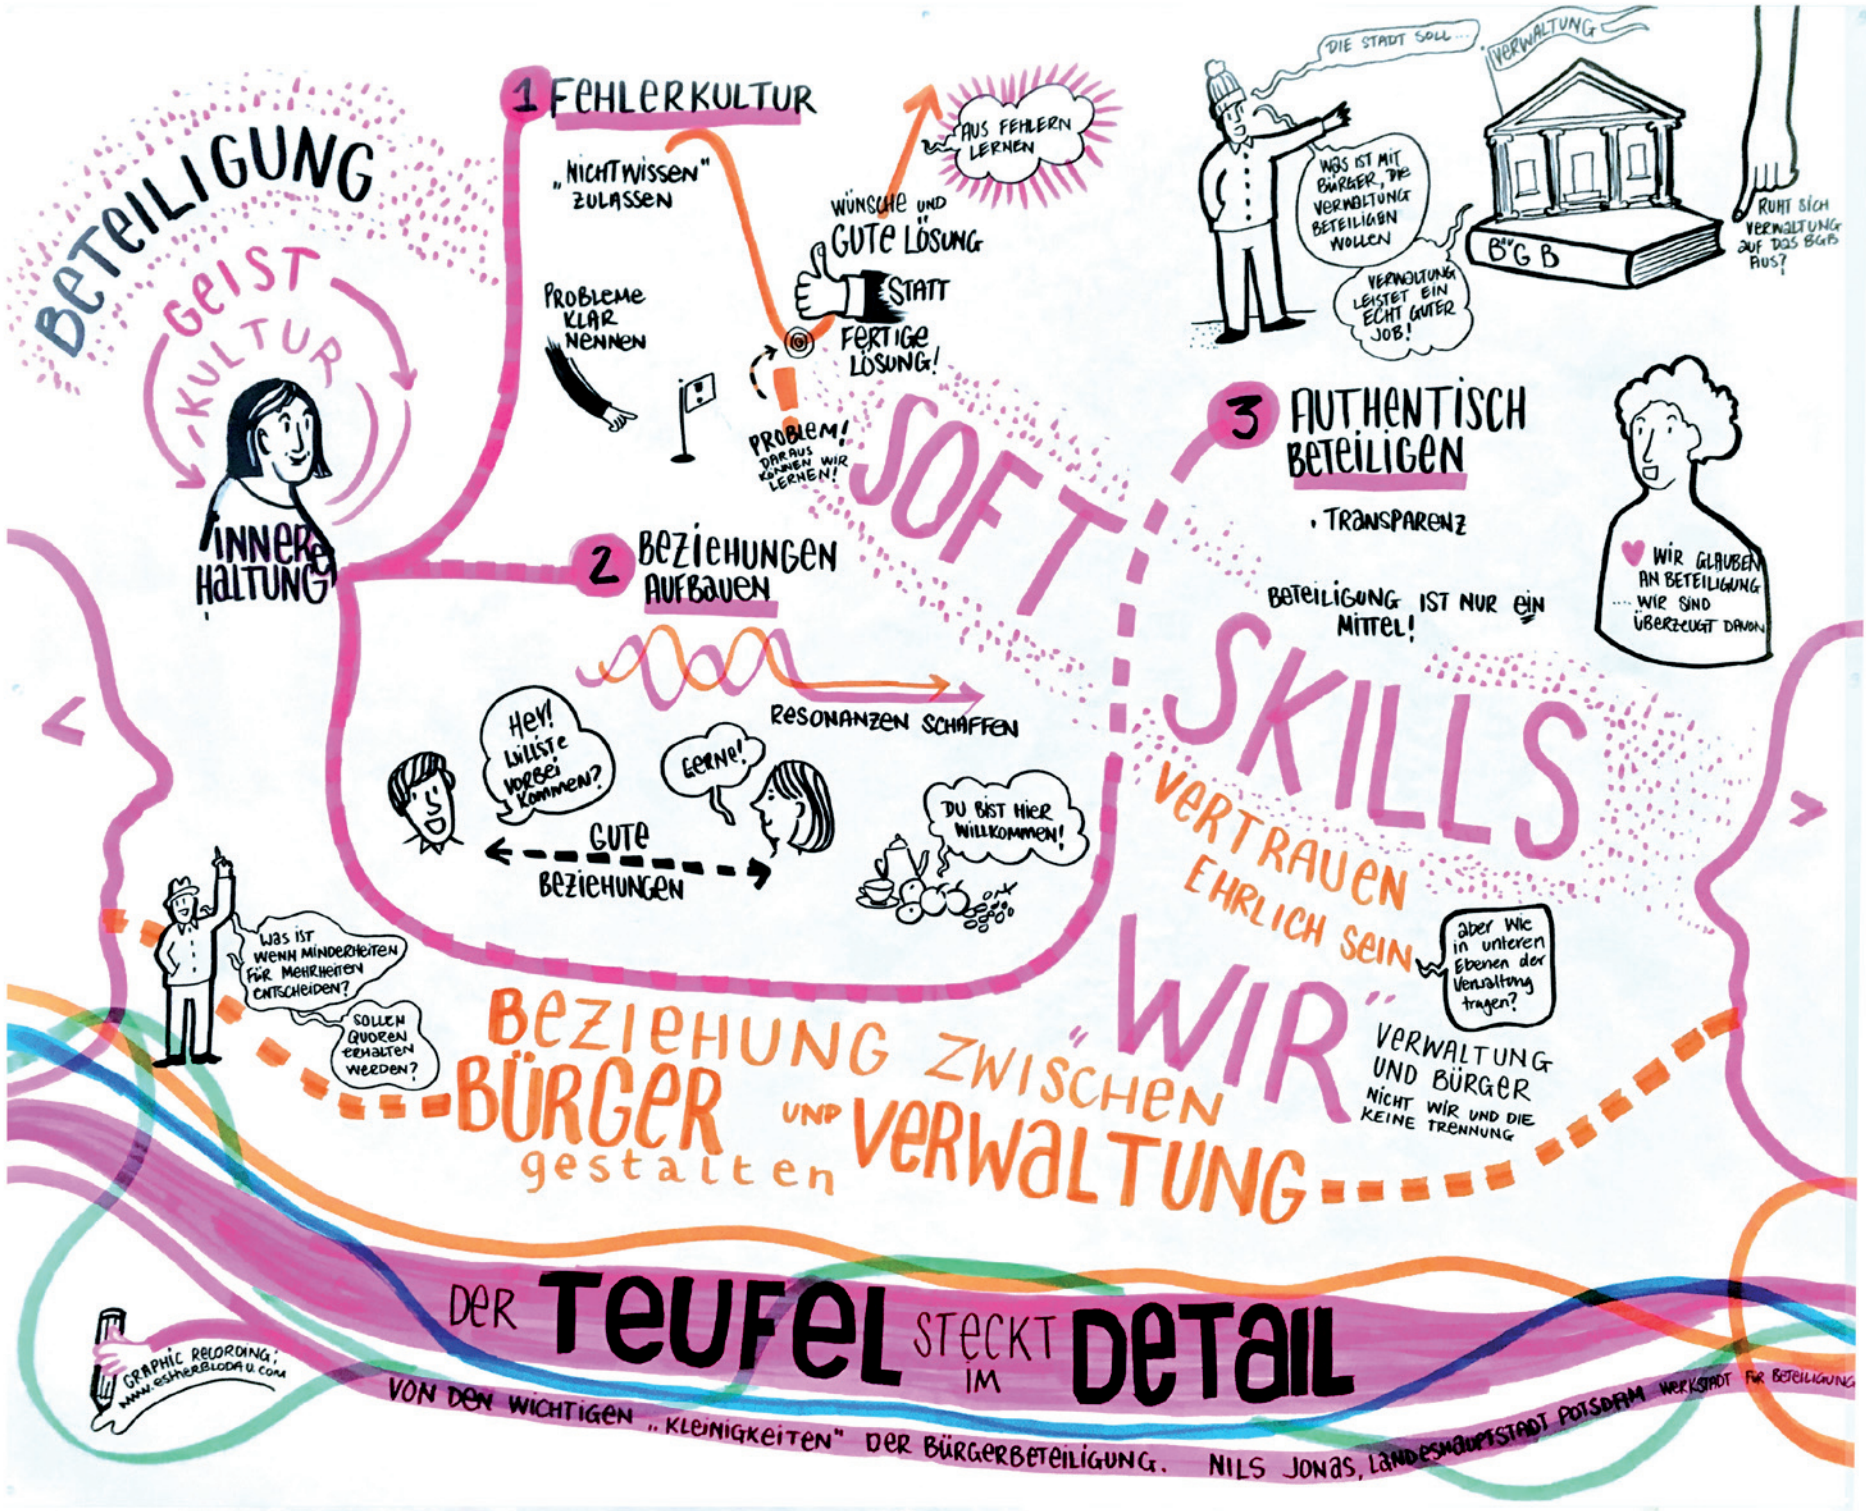 BETEILIGUNG
GEIST
KULTUR
INNERE
HALTUNG
1 FEHLERKULTUR
„NICHTWISSEN"
ZULASSEN
PROBLEME
KLAR
NENNEN
PROBLEM!
DARAUS
KÖNNEN WIR
LERNEN!
WÜNSCHE UND
GUTE LÖSUNG
STATT
FERTIGE
LÖSUNG!
AUS FEHLERN
LERNEN
DIE STADT SOLL...
VERWALTUNG
WAS IST MIT
BÜRGER, DIE
VERWALTUNG
BETEILIGEN
WOLLEN
VERWALTUNG
LEISTET EIN
ECHT GUTER
JOB!
BGB
RUHT SICH
VERWALTUNG
AUF DAS BGB
AUS?
2 BEZIEHUNGEN
AUFBAUEN
RESONANZEN SCHAFFEN
HEY!
WILLSTE
VORBEI
KOMMEN?
GERNE!
GUTE
BEZIEHUNGEN
DU BIST HIER
WILLKOMMEN!
3 AUTHENTISCH
BETEILIGEN
• TRANSPARENZ
BETEILIGUNG IST NUR EIN
MITTEL!
WIR GLAUBEN
AN BETEILIGUNG
.... WIR SIND
ÜBERZEUGT DAVON
SOFT
SKILLS
VERTRAUEN
EHRLICH SEIN
aber wie
in unteren
Ebenen der
Verwaltung
tragen?
"WIR"
VERWALTUNG
UND BÜRGER
NICHT WIR UND DIE
KEINE TRENNUNG
WAS IST
WENN MINDERHEITEN
FÜR MEHRHEITEN
ENTSCHEIDEN?
SOLLEN
QUOREN
ERHALTEN
WERDEN?
BEZIEHUNG ZWISCHEN
BÜRGER UND VERWALTUNG
gestalten
DER TEUFEL STECKT IM DETAIL
GRAPHIC RECORDING:
www.estherblodau.com
VON DEN WICHTIGEN „KLEINIGKEITEN" DER BÜRGERBETEILIGUNG. NILS JONAS, LANDESHAUPTSTADT POTSDAM WERKSTADT FÜR BETEILIGUNG